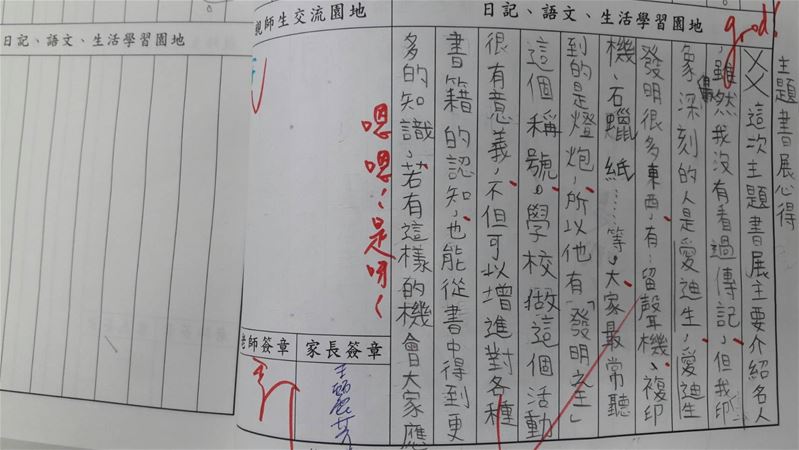 日記、語文、生活學習園地
good!
主題書展心得
這次主題書展主要介紹名人
，雖然我沒有看過傳記，但我印
象最深刻的人是愛迪生，愛迪生
發明很多東西，有：留聲機、複印
機、石蠟紙……等，大家最常聽
到的是燈炮，所以他有「發明之王」
這個稱號。學校做這個活動
很有意義，不但可以增進對各種
書籍的認知，也能從書中得到更
多的知識，若有這樣的機會大家應
親師生交流園地
嗯嗯！是呀！
老師簽章
家長簽章
日記、語文、生活學習園地